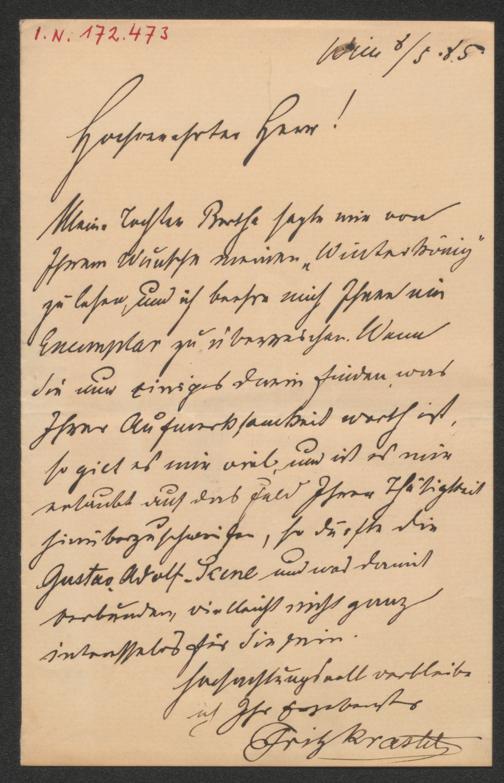 I.N. 172.473
Wien 8/5.85
Hochverehrter Herr!
Meine Tochter Bertha sagte mir von
Ihrem Wunsche meinen „Winterkönig"
zu lesen, und ich beehre mich Ihnen ein
Exemplar zu überreichen. Wenn
Sie nur einiges darin finden, was
Ihrer Aufmerksamkeit werth ist,
so gilt es mir viel, und ist es mir
erlaubt auf das Feld Ihrer Thätigkeit
hinüberzuschweifen, so dürfte die
Gustav-Adolf-Scene und was damit
verbunden, vielleicht nicht ganz
interesselos für Sie sein.
Hochachtungsvoll verbleibe
ich Ihr ergebenster
Fritz Krastel